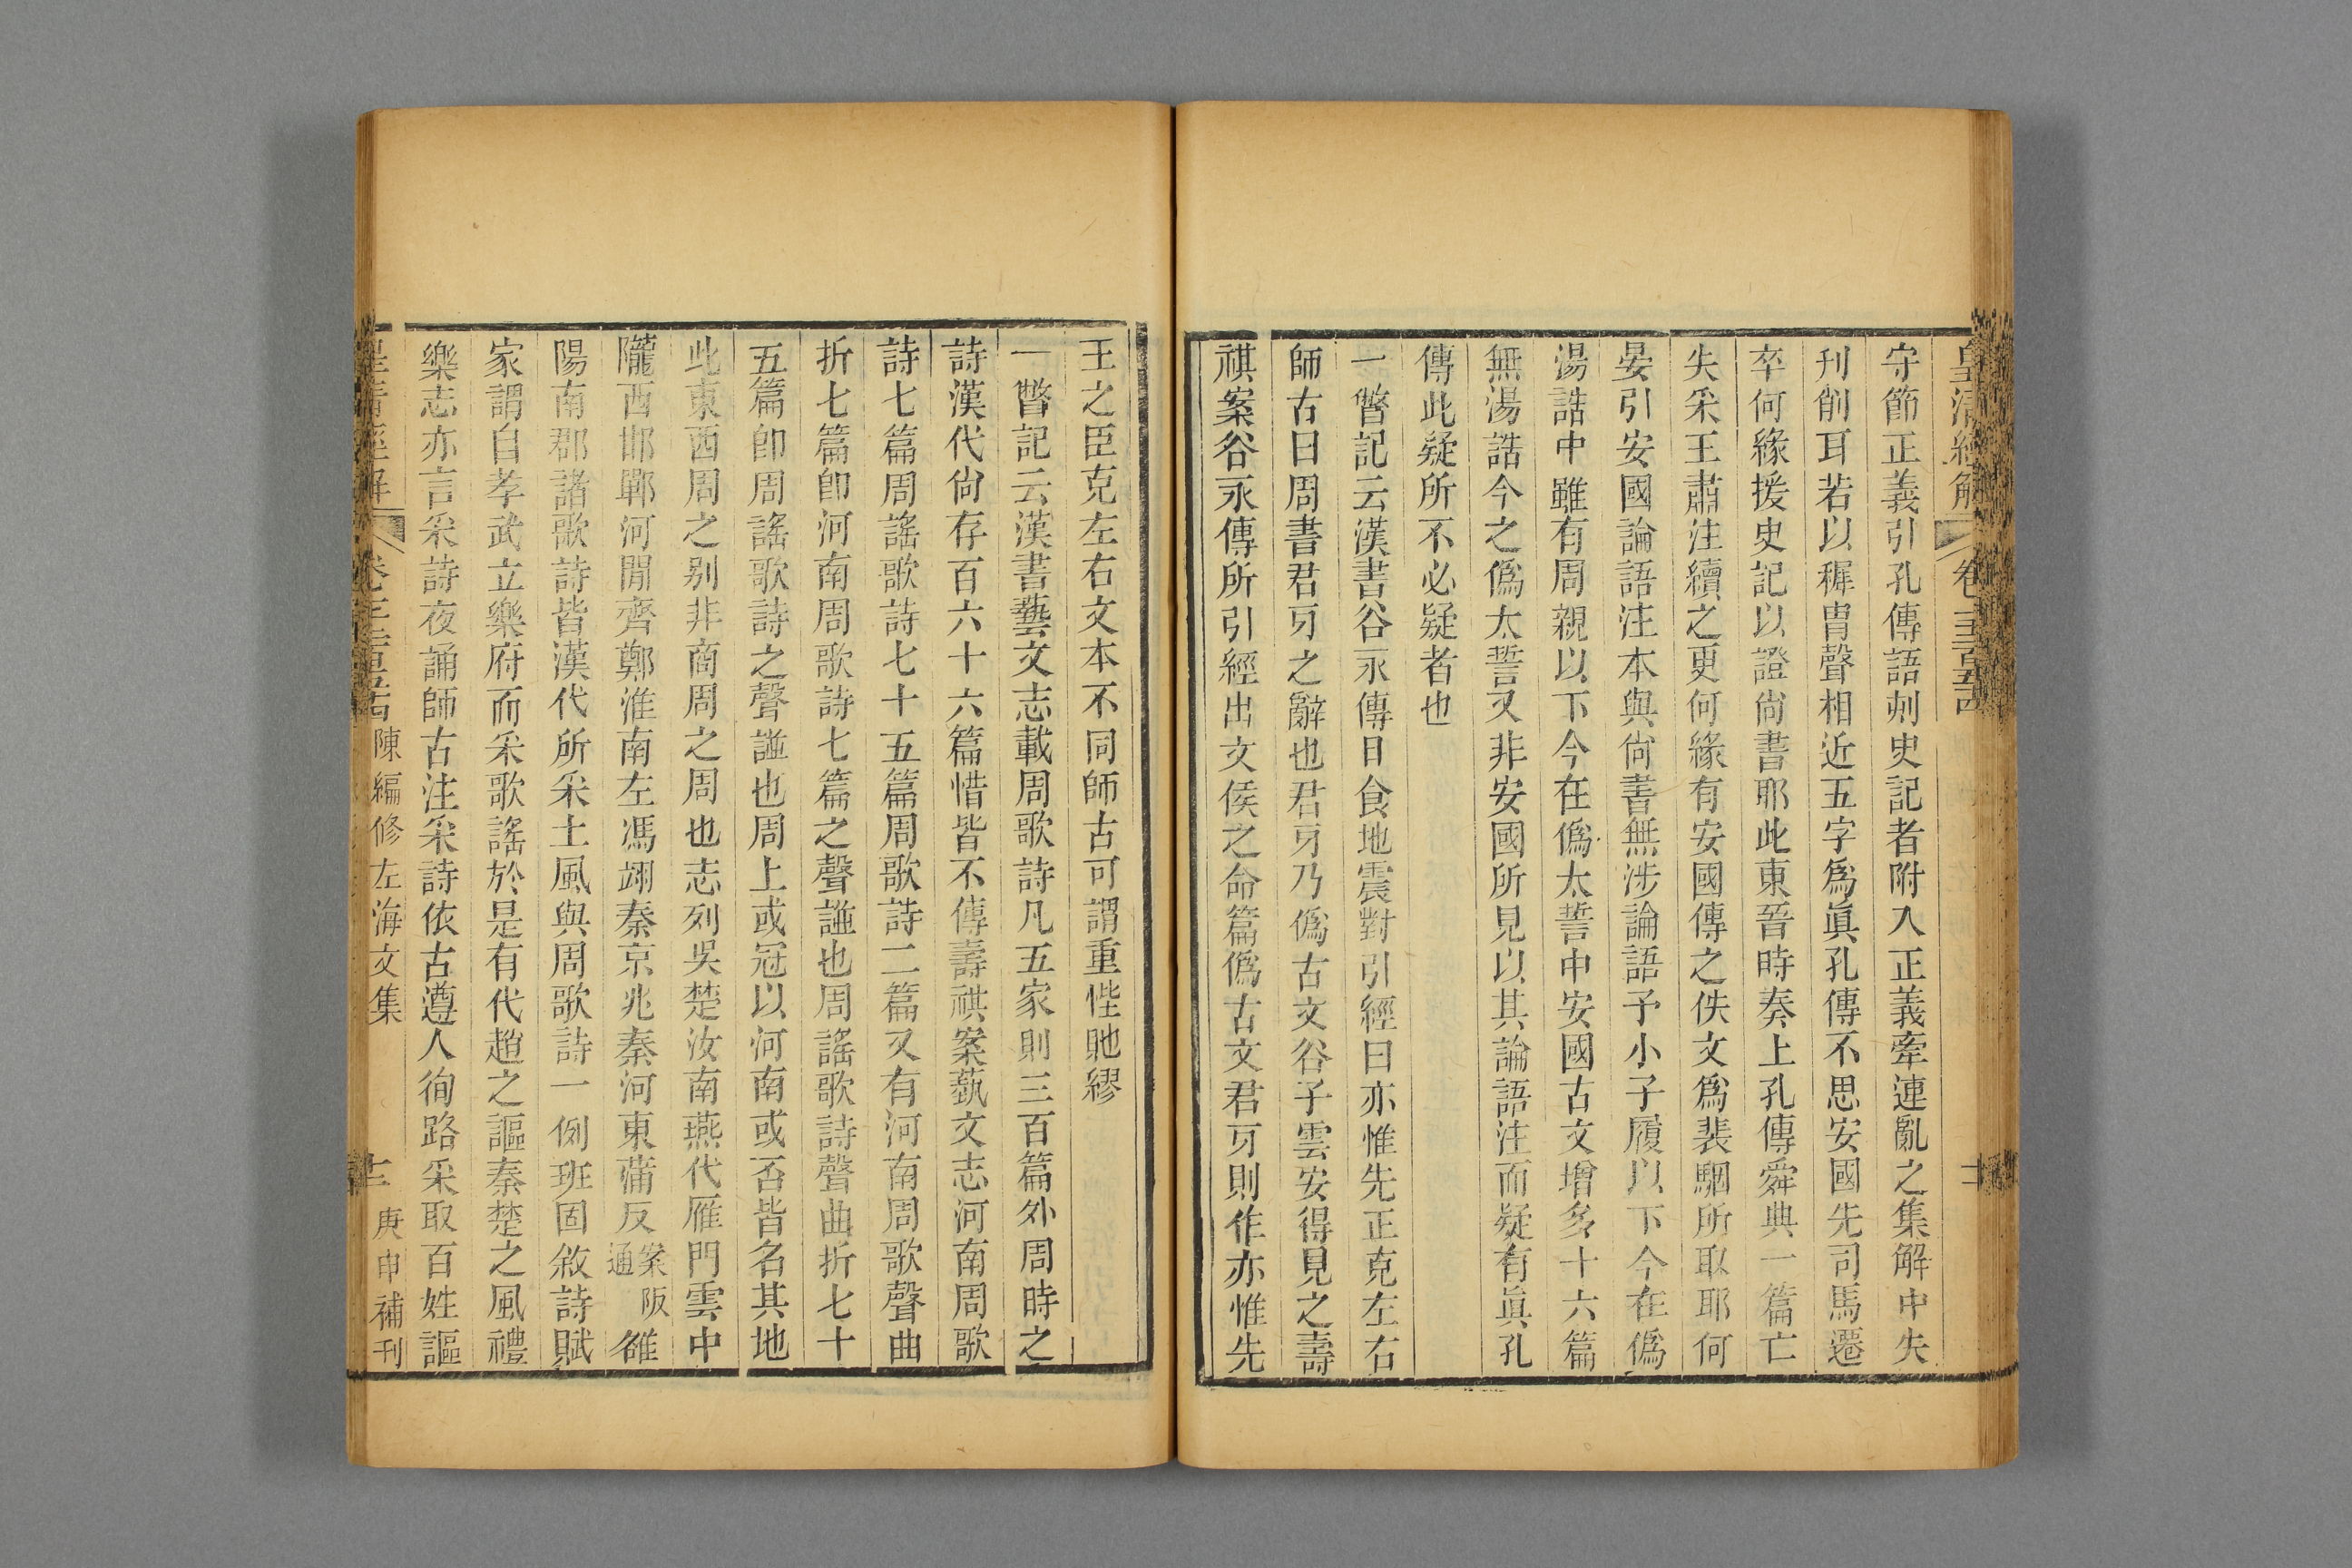 皇清經解 卷一千二百五十四 十一
守節正義引孔傳語刺史記者附入正義牽連亂之集解中失
刊削耳若以穉胄聲相近五字爲眞孔傳不思安國先司馬遷
卒何緣援史記以證尙書耶此東晉時奏上孔傳舜典一篇亡
失采王肅注續之更何緣有安國傳之佚文爲裴駰所取耶何
晏引安國論語注本與尙書無涉論語予小子履以下今在僞
湯誥中雖有周親以下今在僞太誓中安國古文增多十六篇
無湯誥今之僞太誓又非安國所見以其論語注而疑有眞孔
傳此疑所不必疑者也
一瞥記云漢書谷永傳日食地震對引經曰亦惟先正克左右
師古曰周書君牙之辭也君牙乃僞古文谷子雲安得見之壽
祺案谷永傳所引經出文侯之命篇僞古文君牙則作亦惟先
王之臣克左右文本不同師古可謂重悂貤繆
一瞥記云漢書藝文志載周歌詩凡五家則三百篇外周時之
詩漢代尙存百六十六篇惜皆不傳壽祺案蓺文志河南周歌
詩七篇周謠歌詩七十五篇周歌詩二篇又有河南周歌聲曲
折七篇卽河南周歌詩七篇之聲譜也周謠歌詩聲曲折七十
五篇卽周謠歌詩之聲譜也周上或冠以河南或否皆名其地
此東西周之別非商周之周也志列吳楚汝南燕代雁門雲中
隴西邯鄲河閒齊鄭淮南左馮翊秦京兆秦河東蒲反案阪通雒
陽南郡諸歌詩皆漢代所采土風與周歌詩一例班固敘詩賦
家謂自孝武立樂府而采歌謠於是有代趙之謳秦楚之風禮
樂志亦言采詩夜誦師古注采詩依古遵人徇路采取百姓謳
皇清經解 卷一千二百五十四 陳編修左海文集 十二 庚申補刊